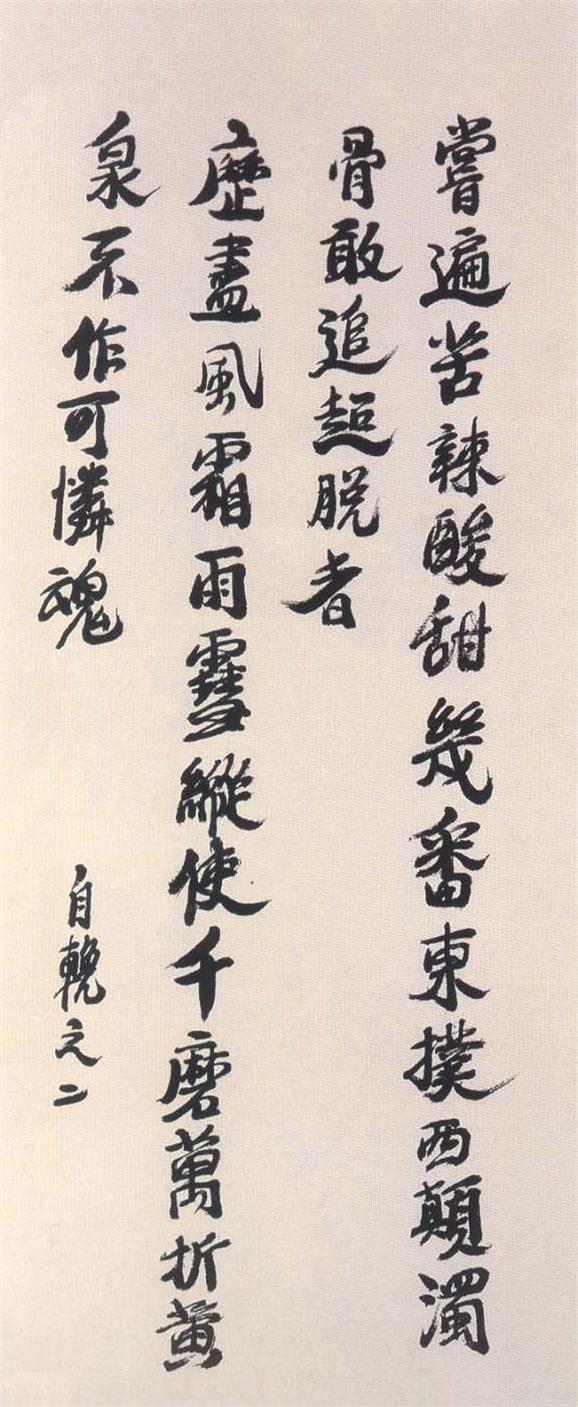 嘗遍苦辣酸甜幾番東撲西顛濁
骨敢追超脱者
歷盡風霜雨雪縱使千磨萬折黄
泉不作可憐魂
自輓之二